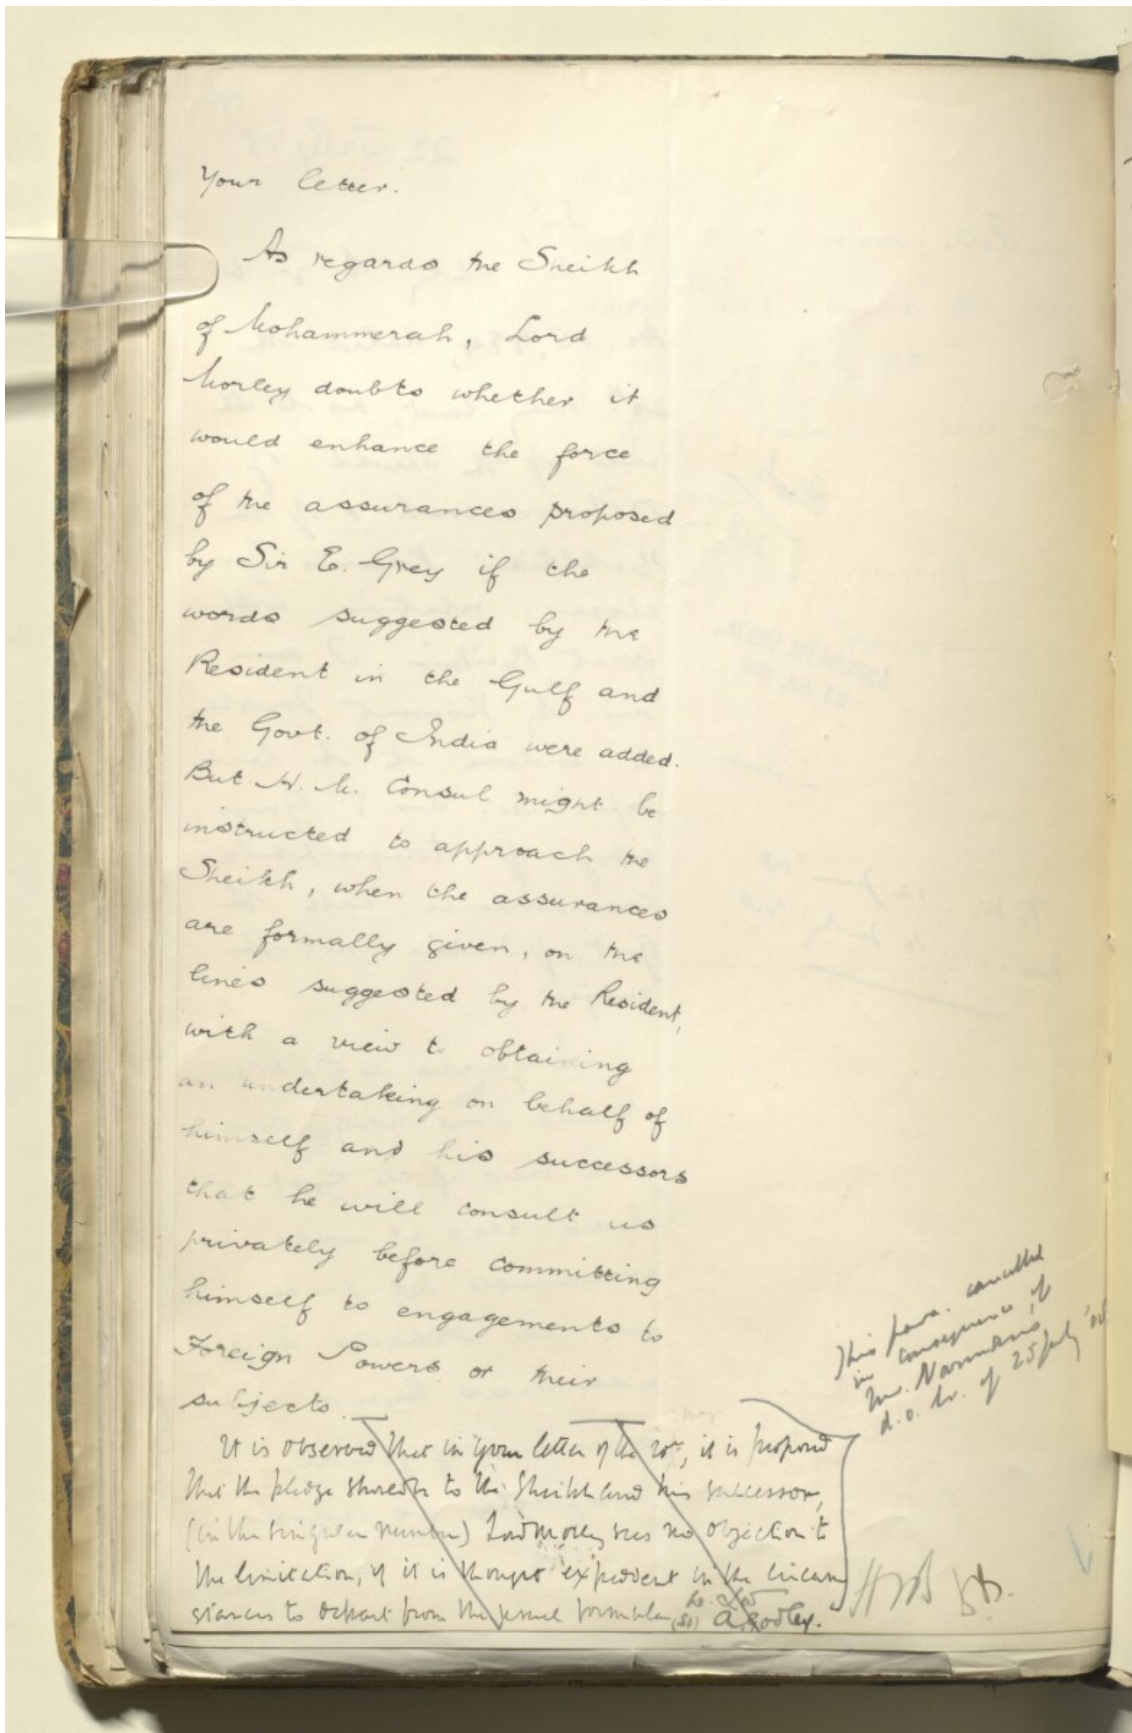 Your letter.
As regards the Sheikh
of Mohammerah, Lord
Morley doubts whether it
would enhance the force
of the assurances proposed
by Sir E. Grey if the
words suggested by the
Resident in the Gulf and
the Govt. of India were added.
But H. M. Consul might be
instructed to approach the
Sheikh, when the assurances
are formally given, on the
lines suggested by the Resident,
with a view to obtaining
an undertaking on behalf of
himself and his successors
that he will consult us
privately before committing
himself to engagements to
Foreign Powers or their
subjects.
It is observed that in your letter of the 20th, it is proposed
that the pledge should be to the Sheikh and his successor,
(in the singular number) Lord Morley sees no objection to
the limitation, if it is thought expedient in the circum
stances to depart from the usual formula.
(Sd) A. Godley.
This para. cancelled
in consequence of
Mr.
d.o. lr. of 25 July '08